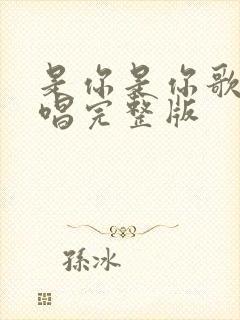 是你是你歌
唱完整版
孫冰